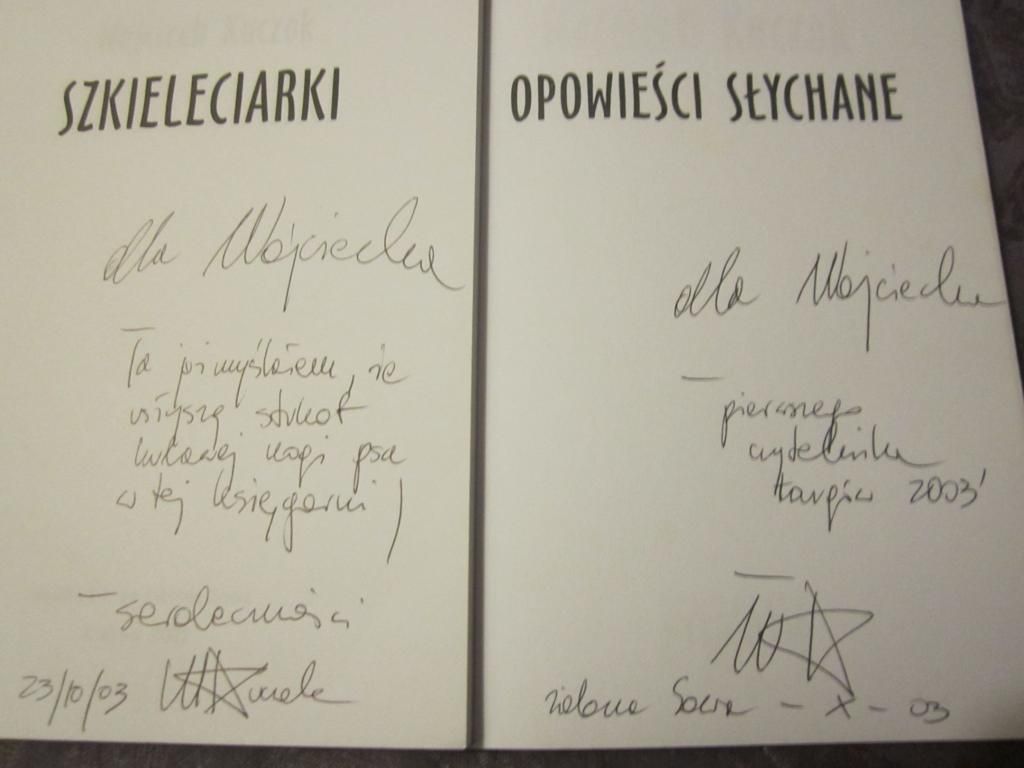 SZKIELECIARKI
dla Wojciecha
Ta pomyślałem, że
usłyszę stukot
kulawej nogi psa
w tej księgarni
serdeczności
23/10/03
OPOWIEŚCI SŁYCHANE
dla Wojciecha
pierwszego
czytelnika
targów 2003'
Zielona Góra - X - 03